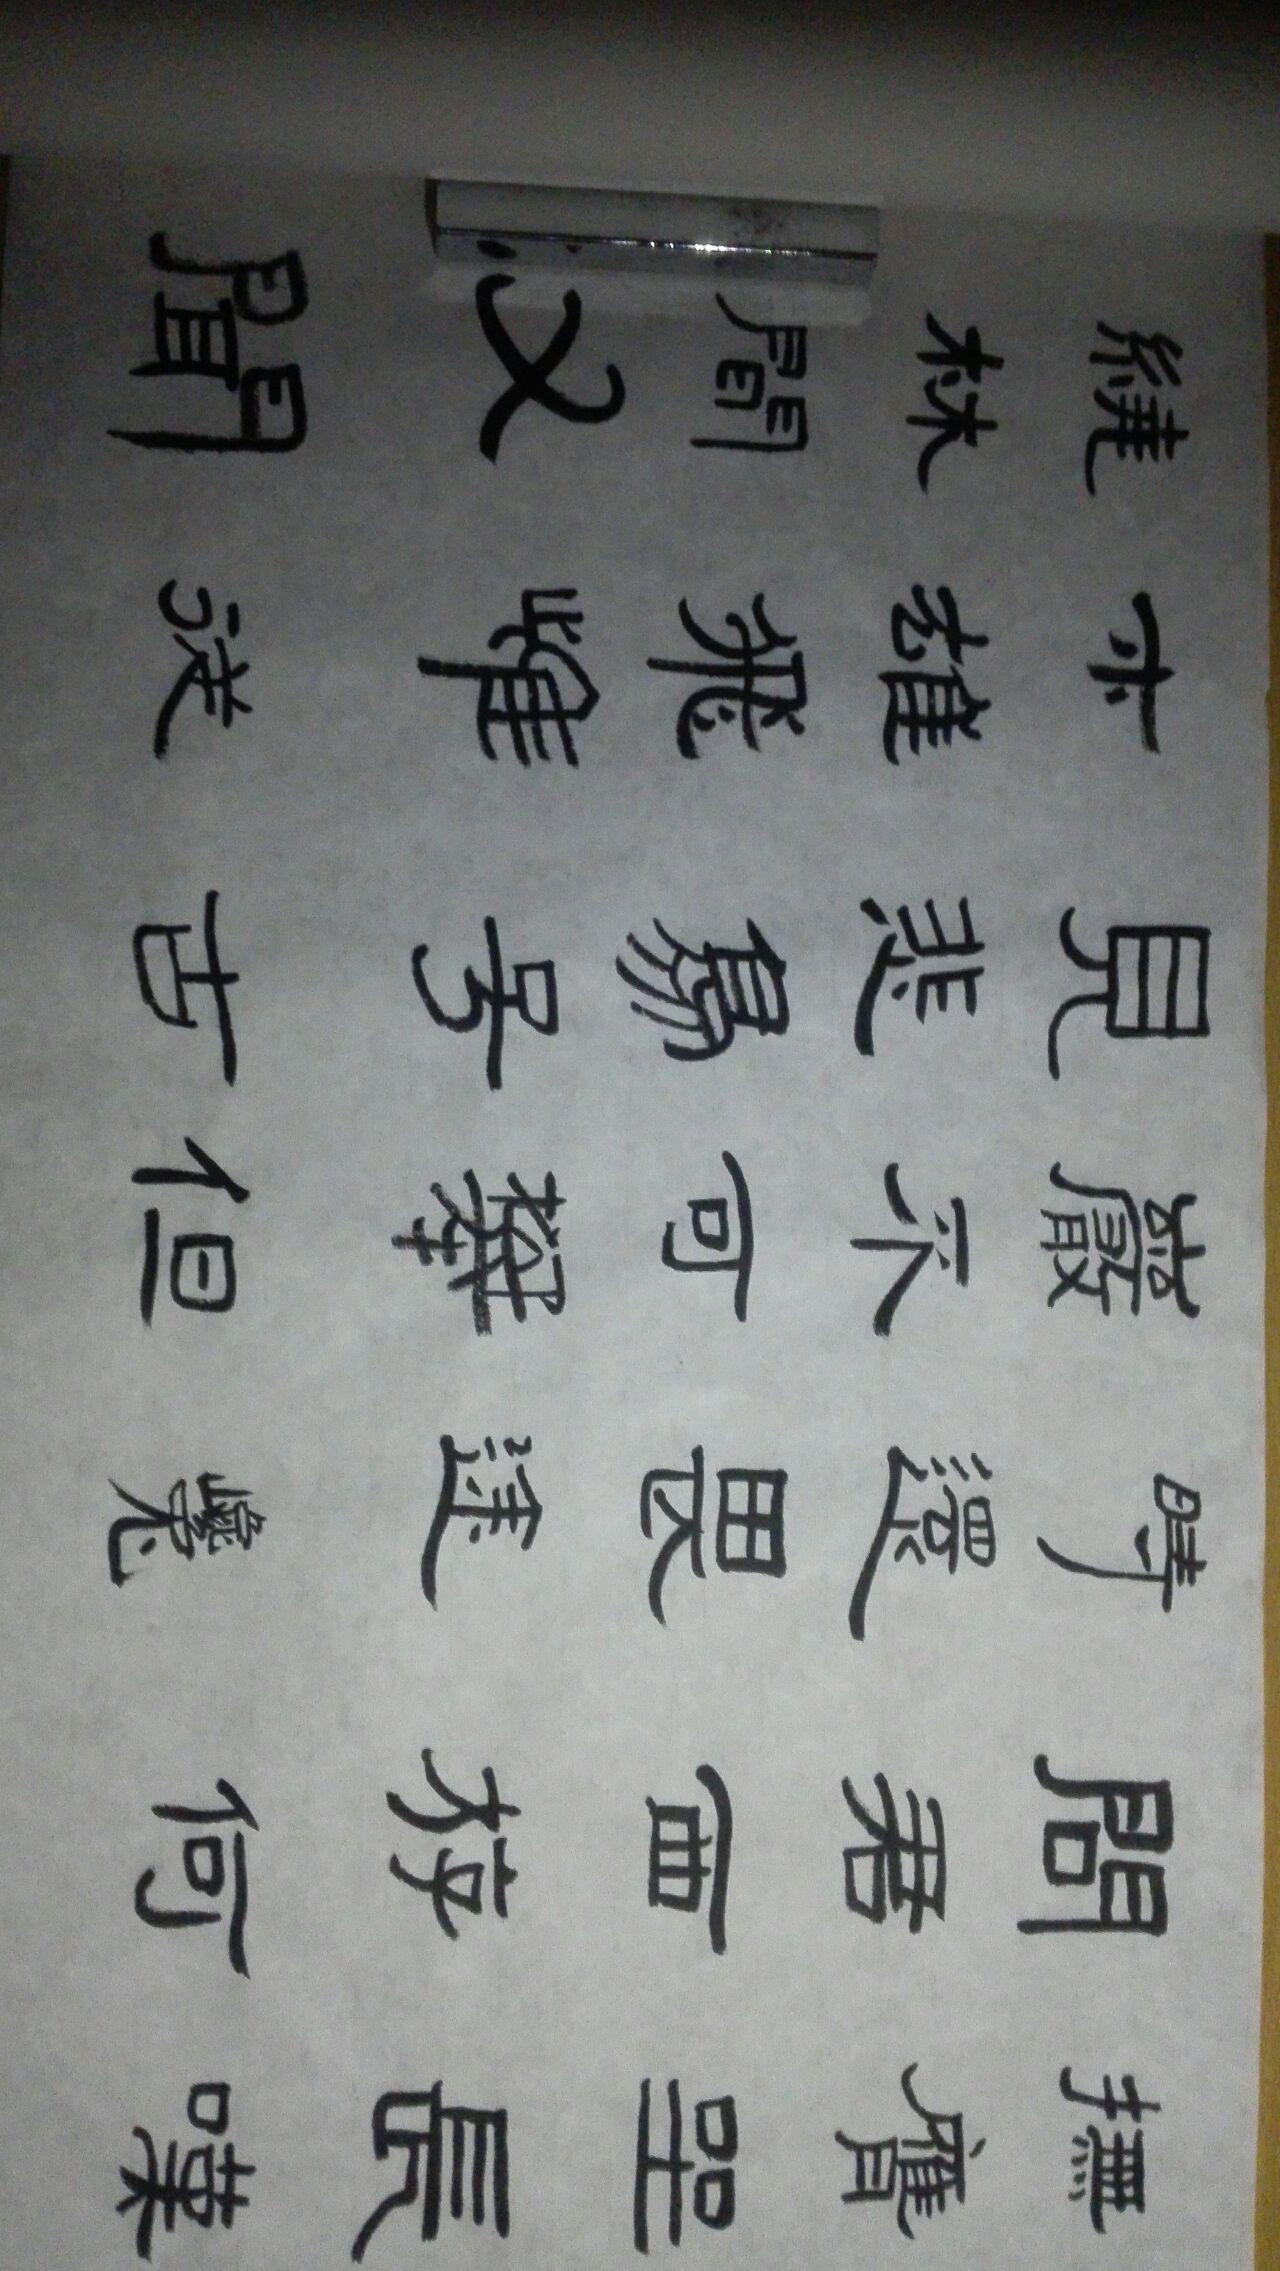 撫膺坐長嘆
問君西遊何
時還畏途巉
巖不可攀但
見悲鳥號古
木雄飛雌從
繞林間又聞